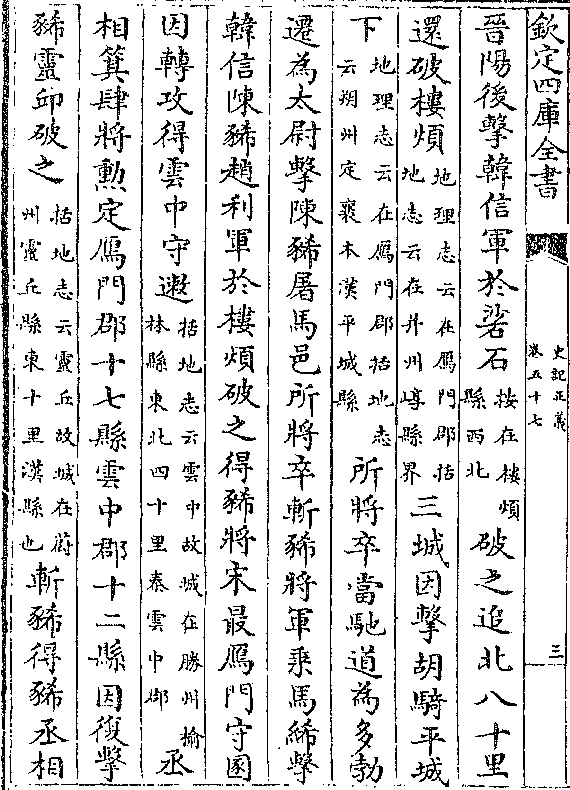 欽定四庫全書
史記正義
卷五十七
三
晉陽後擊韓信軍於硰石按在樓煩縣西北破之追北八十里
還破樓煩地理志云在鴈門郡括地志云在并州崞縣界三城因擊胡騎平城
下地理志云在鴈門郡括地志云朔州定襄本漢平城縣所將卒當馳道為多勃
遷為太尉擊陳豨屠馬邑所將卒斬豨將軍乘馬絺擊
韓信陳豨趙利軍於樓煩破之得豨將宋最鴈門守圂
因轉攻得雲中守遫括地志云雲中故城在勝州榆林縣東北四十里秦雲中郡丞
相箕肆將勲定鴈門郡十七縣雲中郡十二縣因復擊
豨靈邱破之括地志云靈丘故城在蔚州靈丘縣東十里漢縣也斬豨得豨丞相